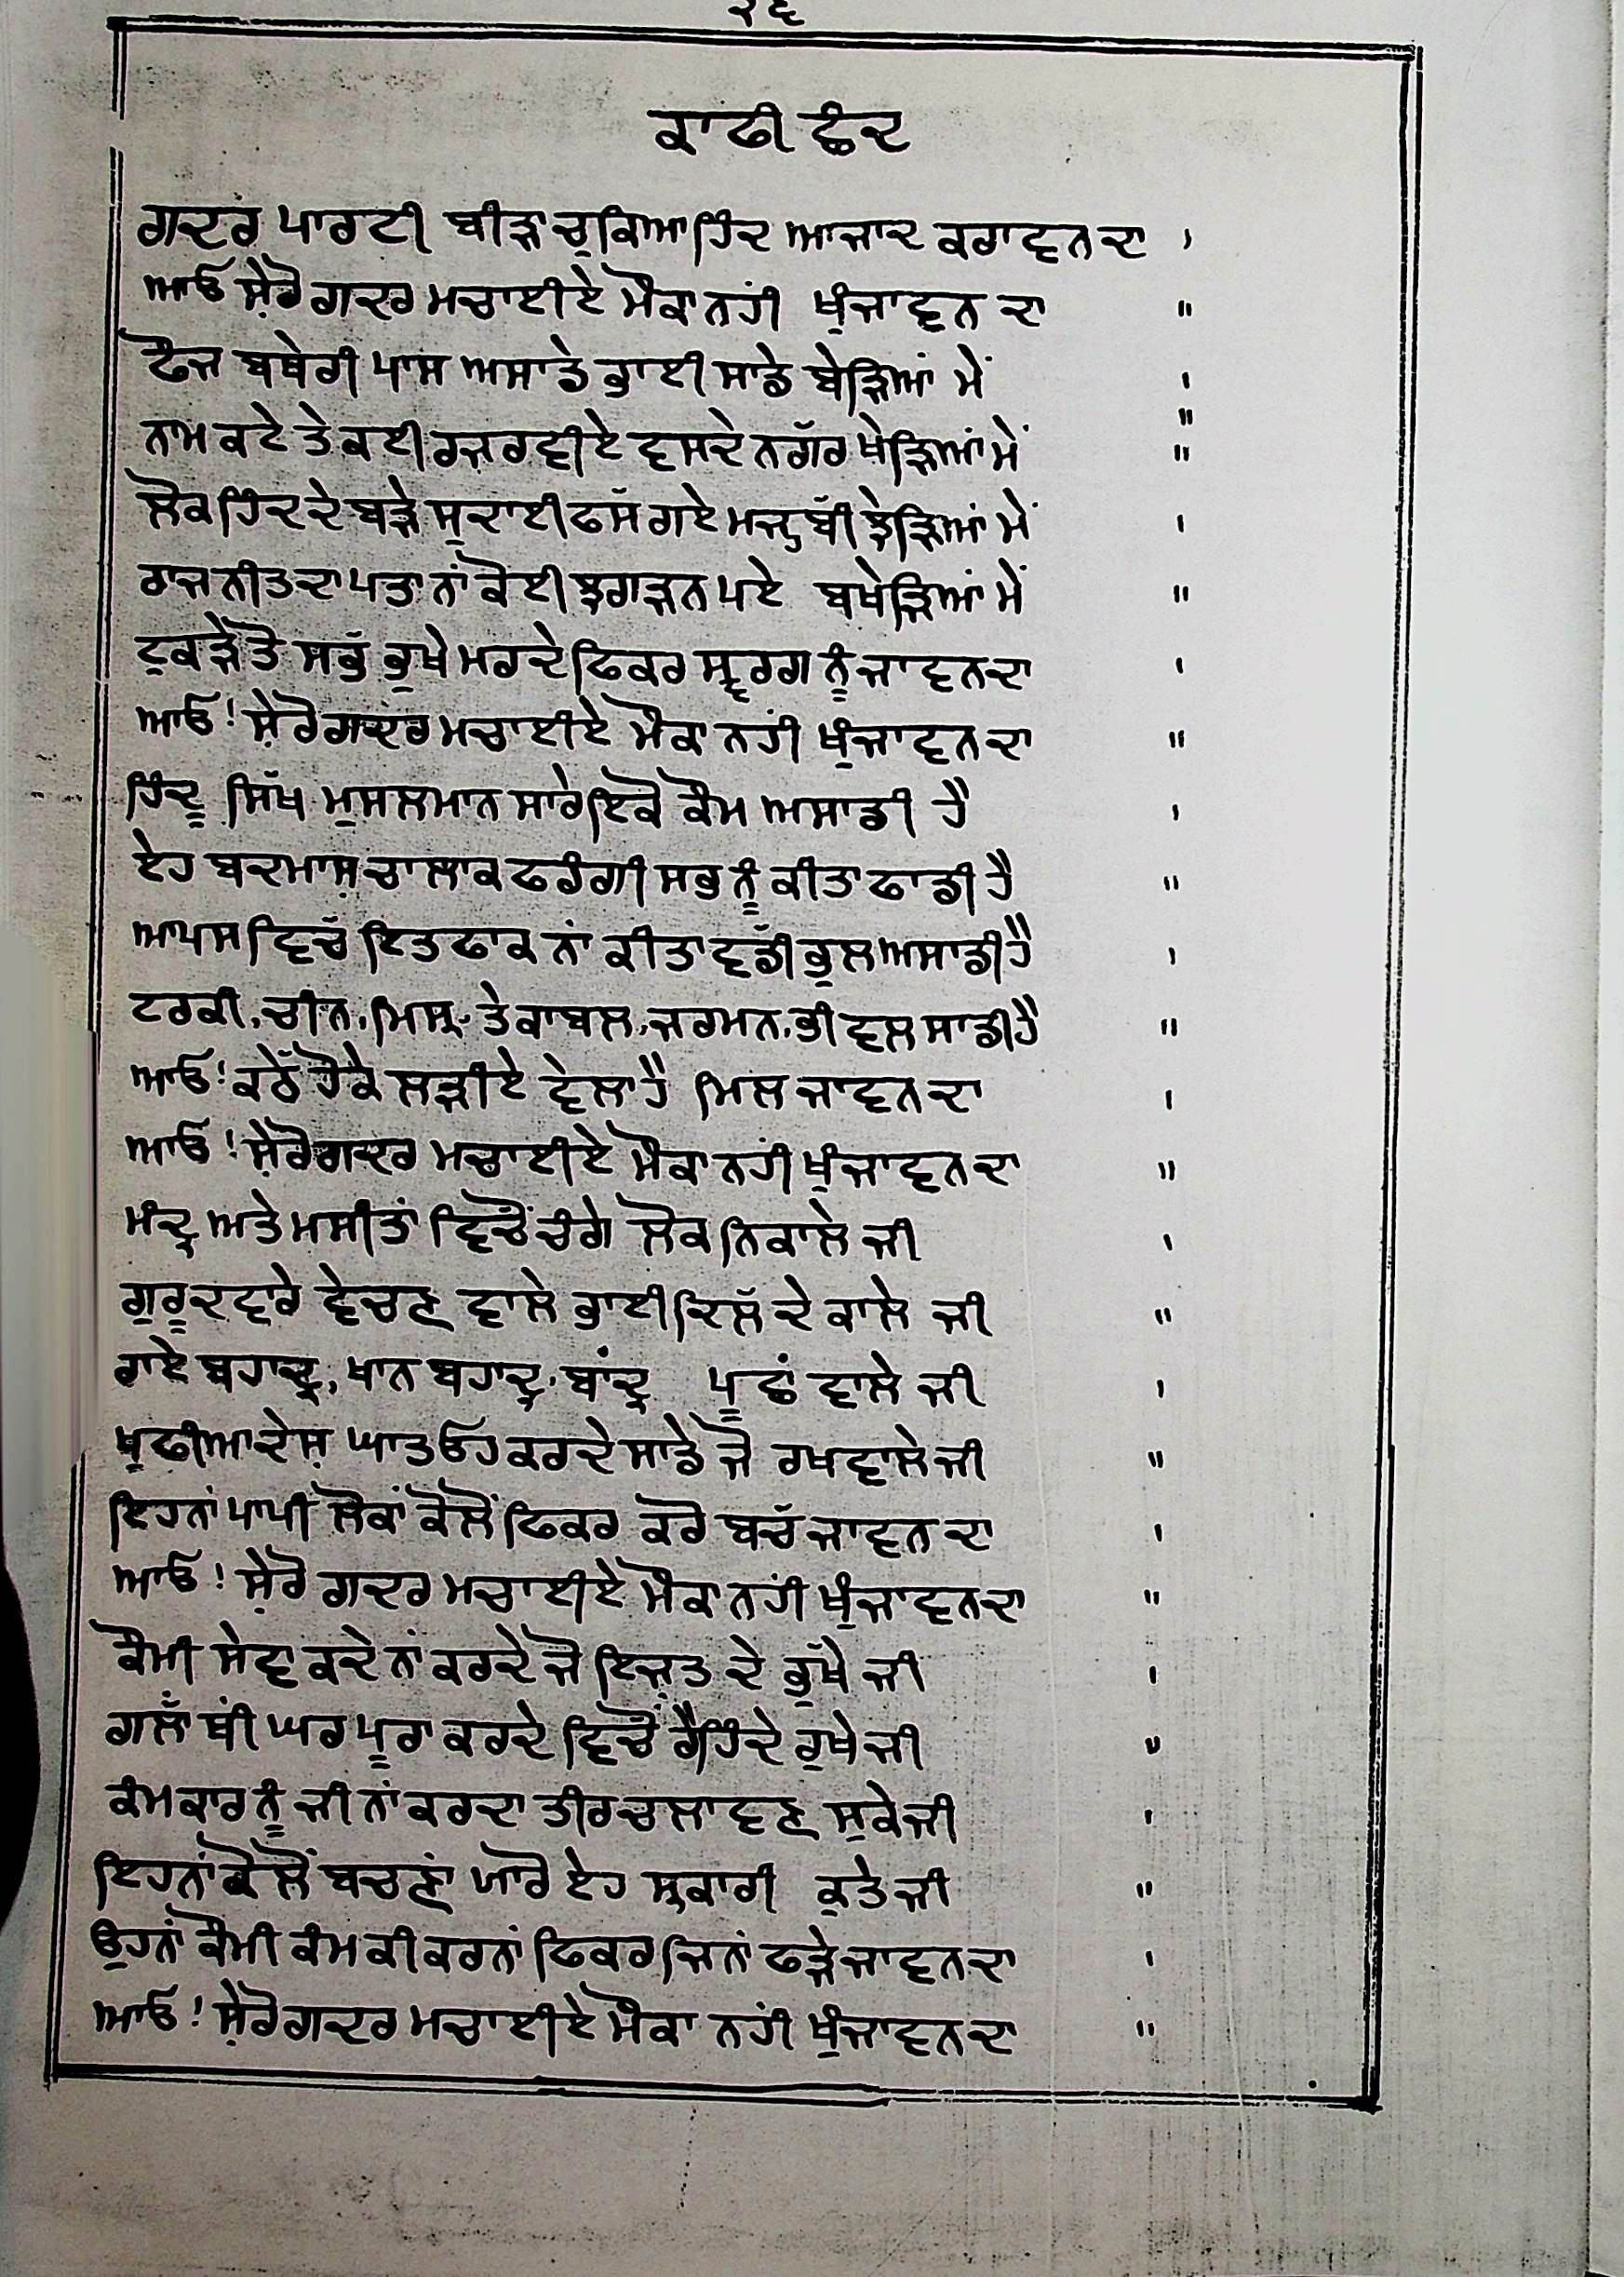 ੨੬
ਕਾਫੀ ਛੰਦ
ਗਦਰ ਪਾਰਟੀ ਬੀੜਾ ਚੁਕਿਆ ਹਿੰਦ ਆਜ਼ਾਦ ਕਰਾਵਨ ਦਾ ,
ਆਓ ਸ਼ੇਰੋ ਗਦਰ ਮਚਾਈਏ ਮੌਕਾ ਨਹੀਂ ਖੁੰਜਾਵਨ ਦਾ "
ਫੌਜ ਬਥੇਰੀ ਪਾਸ ਅਸਾਡੇ ਭਾਈ ਸਾਡੇ ਬੇੜਿਆਂ ਮੇਂ '
ਨਾਮ ਕਟੇ ਤੇ ਕਈ ਰਜ਼ਰਵੀਏ ਵਸਦੇ ਨਗੱਰ ਖੇੜਿਆਂ ਮੇਂ "
ਲੋਕ ਹਿੰਦ ਦੇ ਬੜੇ ਸੁਦਾਈ ਫਸੱ ਗਏ ਮਜ਼੍ਹਬੀ ਝੇੜਿਆਂ ਮੇਂ '
ਰਾਜਨੀਤ ਦਾ ਪਤਾ ਨਾਂ ਕੋਈ ਝਗੜਨ ਪਏ ਬਖੇੜਿਆਂ ਮੇਂ "
ਟੁਕੜੇ ਤੋਂ ਸਭੱ ਭੁਖੇ ਮਰਦੇ ਫਿਕਰ ਸ੍ਵਰਗ ਨੂੰ ਜਾਵਨ ਦਾ '
ਆਓ! ਸ਼ੇਰੋ ਗਦਰ ਮਚਾਈਏ ਮੌਕਾ ਨਹੀਂ ਖੁੰਜਾਵਨ ਦਾ "
ਹਿੰਦੂ ਸਿੱਖ ਮੁਸਲਮਾਨ ਸਾਰੇ ਇਕੋ ਕੌਮ ਅਸਾਡੀ ਹੈ '
ਏਹ ਬਦਮਾਸ਼ ਚਾਲਾਕ ਫਰੰਗੀ ਸਭ ਨੂੰ ਕੀਤਾ ਫਾਡੀ ਹੈ "
ਆਪਸ ਵਿਚੱ ਇਤਫਾਕ ਨਾਂ ਕੀਤਾ ਵਡੱੀ ਭੁਲ ਅਸਾਡੀ ਹੈ '
ਟਰਕੀ, ਚੀਨ, ਮਿਸ੍ਰ, ਤੇ ਕਾਬਲ, ਜਰਮਨ, ਭੀ ਵਲ ਸਾਡੀ ਹੈ "
ਆਓ! ਕਠੇੱ ਹੋਕੇ ਲੜੀਏ ਵੇਲਾ ਹੈ ਮਿਲ ਜਾਵਨ ਦਾ '
ਆਓ! ਸ਼ੇਰੋ ਗਦਰ ਮਚਾਈਏ ਮੌਕਾ ਨਹੀਂ ਖੁੰਜਾਵਨ ਦਾ "
ਮੰਦ੍ਰ ਅਤੇ ਮਸੀਤਾਂ ਵਿਚੋਂ ਚੰਗੇ ਲੋਕ ਨਿਕਾਲੇ ਜੀ '
ਗੁਰੂਦਵਾਰੇ ਵੇਚਣ ਵਾਲੇ ਭਾਈ ਦਿਲੱ ਦੇ ਕਾਲੇ ਜੀ "
ਰਾਏ ਬਹਾਦ੍ਰ, ਖਾਨ ਬਹਾਦ੍ਰ, ਬਾਂਦ੍ਰ ਪੂਛਂ ਵਾਲੇ ਜੀ '
ਖੁਫੀਆ ਦੇਸ਼ ਘਾਤ ਓਹ ਕਰਦੇ ਸਾਡੇ ਜੋ ਰਖਵਾਲੇ ਜੀ "
ਇਹਨਾਂ ਪਾਪੀ ਲੋਕਾਂ ਕੋਲੋਂ ਫਿਕਰ ਕਰੋ ਬਚੱ ਜਾਵਨ ਦਾ '
ਆਓ! ਸ਼ੇਰੋ ਗਦਰ ਮਚਾਈਏ ਮੌਕਾ ਨਹੀਂ ਖੁੰਜਾਵਨ ਦਾ "
ਕੌਮੀ ਸੇਵਾ ਕਦੇ ਨਾਂ ਕਰਦੇ ਜੋ ਇਜ਼ਤ ਦੇ ਭੁੱਖੇ ਜੀ '
ਗਲਾੱਂ ਥੀਂ ਘਰ ਪੂਰਾ ਕਰਦੇ ਵਿਚੋਂ ਰੈਹਿੰਦੇ ਰੁਖੇ ਜੀ "
ਕੰਮਕਾਰ ਨੂੰ ਜੀ ਨਾਂ ਕਰਦਾ ਤੀਰ ਚਲਾਵਣ ਸੁਕੇ ਜੀ '
ਇਹਨਾਂ ਕੋਲੋਂ ਬਚਣਾਂ ਯਾਰੋ ਏਹ ਸ੍ਰਕਾਰੀ ਕੁਤੇ ਜੀ "
ਉਹਨਾਂ ਕੌਮੀ ਕੰਮ ਕੀ ਕਰਨਾਂ ਫਿਕਰ ਜਿਨਾਂ ਫੜੇ ਜਾਵਨ ਦਾ '
ਆਓ! ਸ਼ੇਰੋ ਗਦਰ ਮਚਾਈਏ ਮੌਕਾ ਨਹੀਂ ਖੁੰਜਾਵਨ ਦਾ "